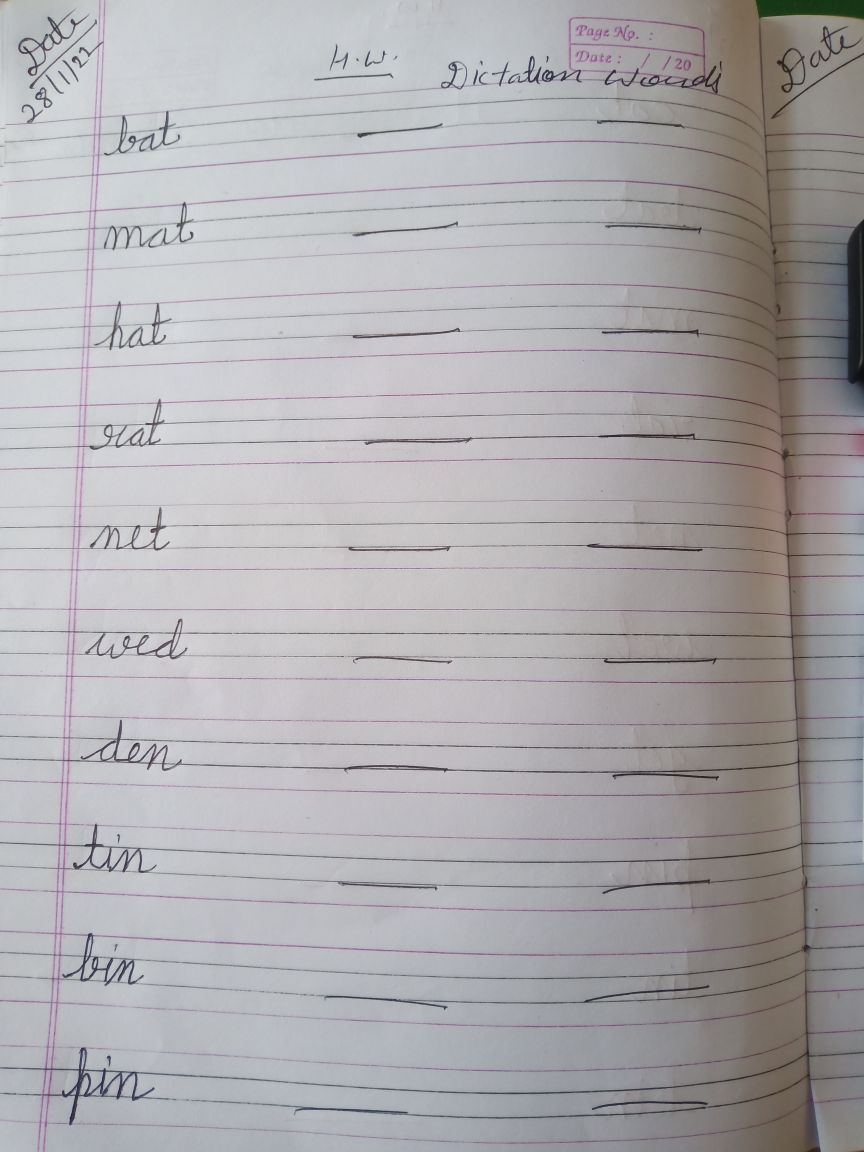 Date
28/1/22
H.W.
Page No. :
Date : / /20
Dictation words
Date
bat
mat
hat
rat
net
wed
den
tin
bin
pin